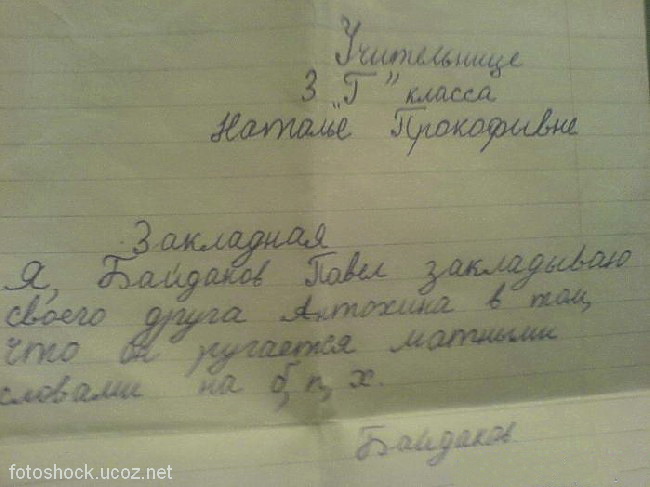 Учительнице
3 "Г" класса
Наталье Прокофивне
Закладная
Я, Байдаков Павел закладываю
своего друга Антохина в том,
что он ругается матными
словами на б, п, х.
Байдаков
fotoshock.ucoz.net